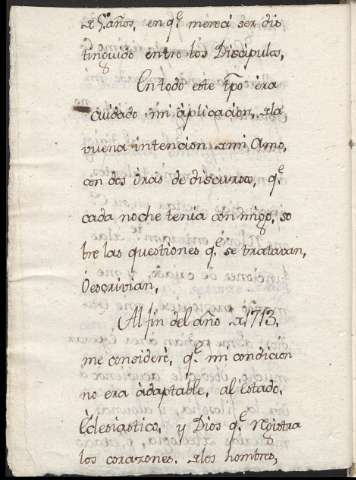 años, en q.e merecí ser dis
tinguido entre los Discipulos,
En todo este tpo éra
cuidado mi áplicacion, ala
vuena intencion ami Amo,
con dos óras de discurso, q.e
cada noche tenia conmigo, so
bre las questiones q.e se tratavan,
ó escrivian,
Al fin del año a 1713,
me considerè, q.e mi condicion
no era ádaptable, al estado,
Ecclesiastico, y Dios q.e
los corazones, alos hombres,